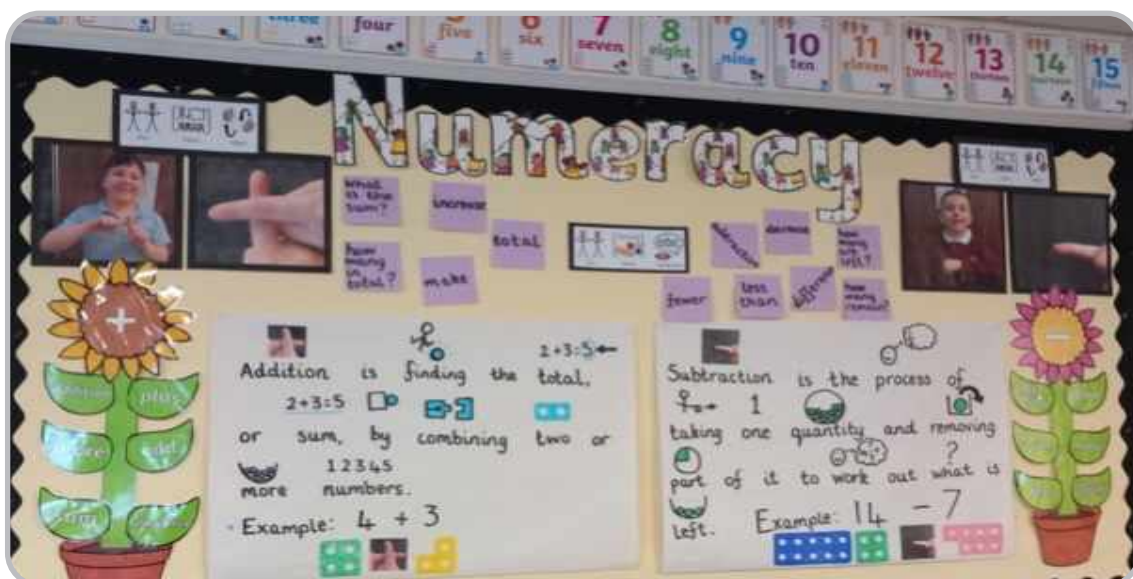 three
four
5
five
6
six
7
seven
8
eight
9
nine
10
ten
11
eleven
12
twelve
13
thirteen
14
fourteen
15
fifteen
Numeracy
what is the sum?
increase
total
how many in total?
make
subtraction
decrease
how many are left?
fewer
less than
difference
how many remain?
+
plus
more
add
2+3=5
Addition is finding the total,
2+3=5
or sum, by combining two or
1 2 3 4 5
more numbers.
Example: 4 + 3
Subtraction is the process of
1
taking one quantity and removing
?
part of it to work out what is
left. Example: 14 - 7
-